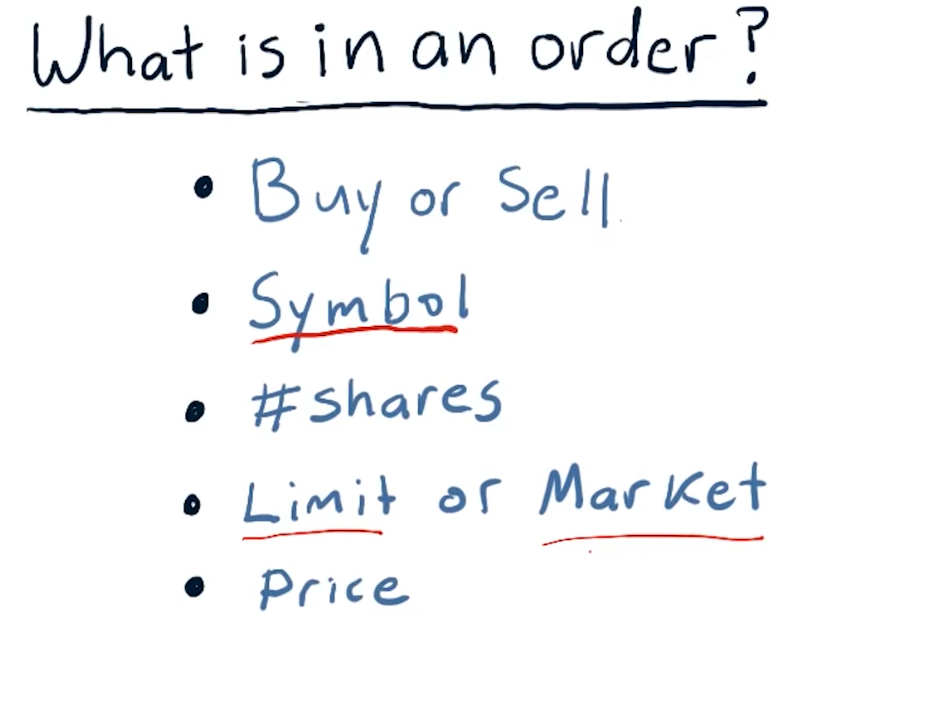 What is in an order?
• Buy or Sell
• Symbol
• #shares
• Limit or Market
• Price